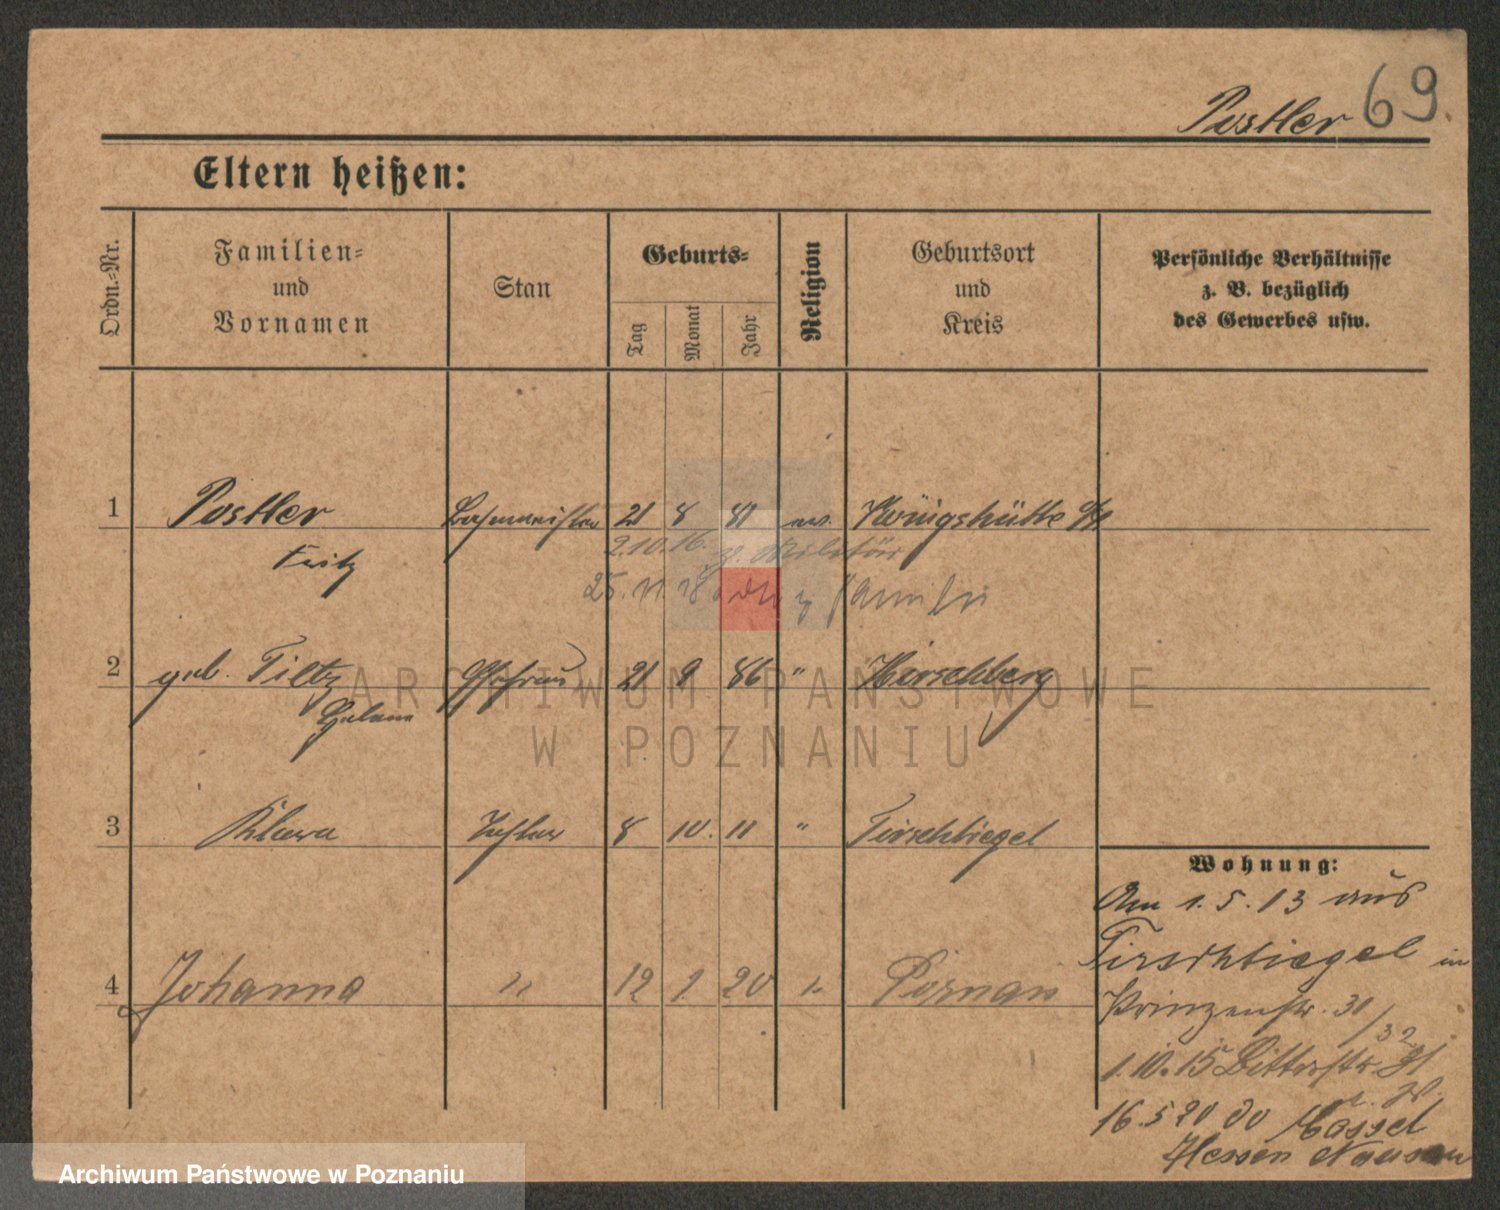 Postler 69.
Eltern heißen:
Ordn.-Nr.
Familien-
und
Vornamen
Stan
Geburts-
Tag
Monat
Jahr
Religion
Geburtsort
und
Kreis
Persönliche Verhältnisse
z. B. bezüglich
des Gewerbes usw.
1 Postler 21 8 81 ev. Königshütte O/S
Fritz
2.10.16. z. Militär
25.11.18 Familie
2 geb. Tiltz Ehefrau 21 9 86 " Hirschberg
Helene
3 Klara Tochter 8 10. 11 " Tirschtiegel
4 Johanna " 12 1 20 " Poznań
Wohnung:
Am 1.5.13 aus
Tirschtiegel in
Prinzenstr. 31
/32
1.10.15
16.5 20 do Cassel
Hessen Nassau
ARCHIWUM PAŃSTWOWE
W POZNANIU
Archiwum Państwowe w Poznaniu